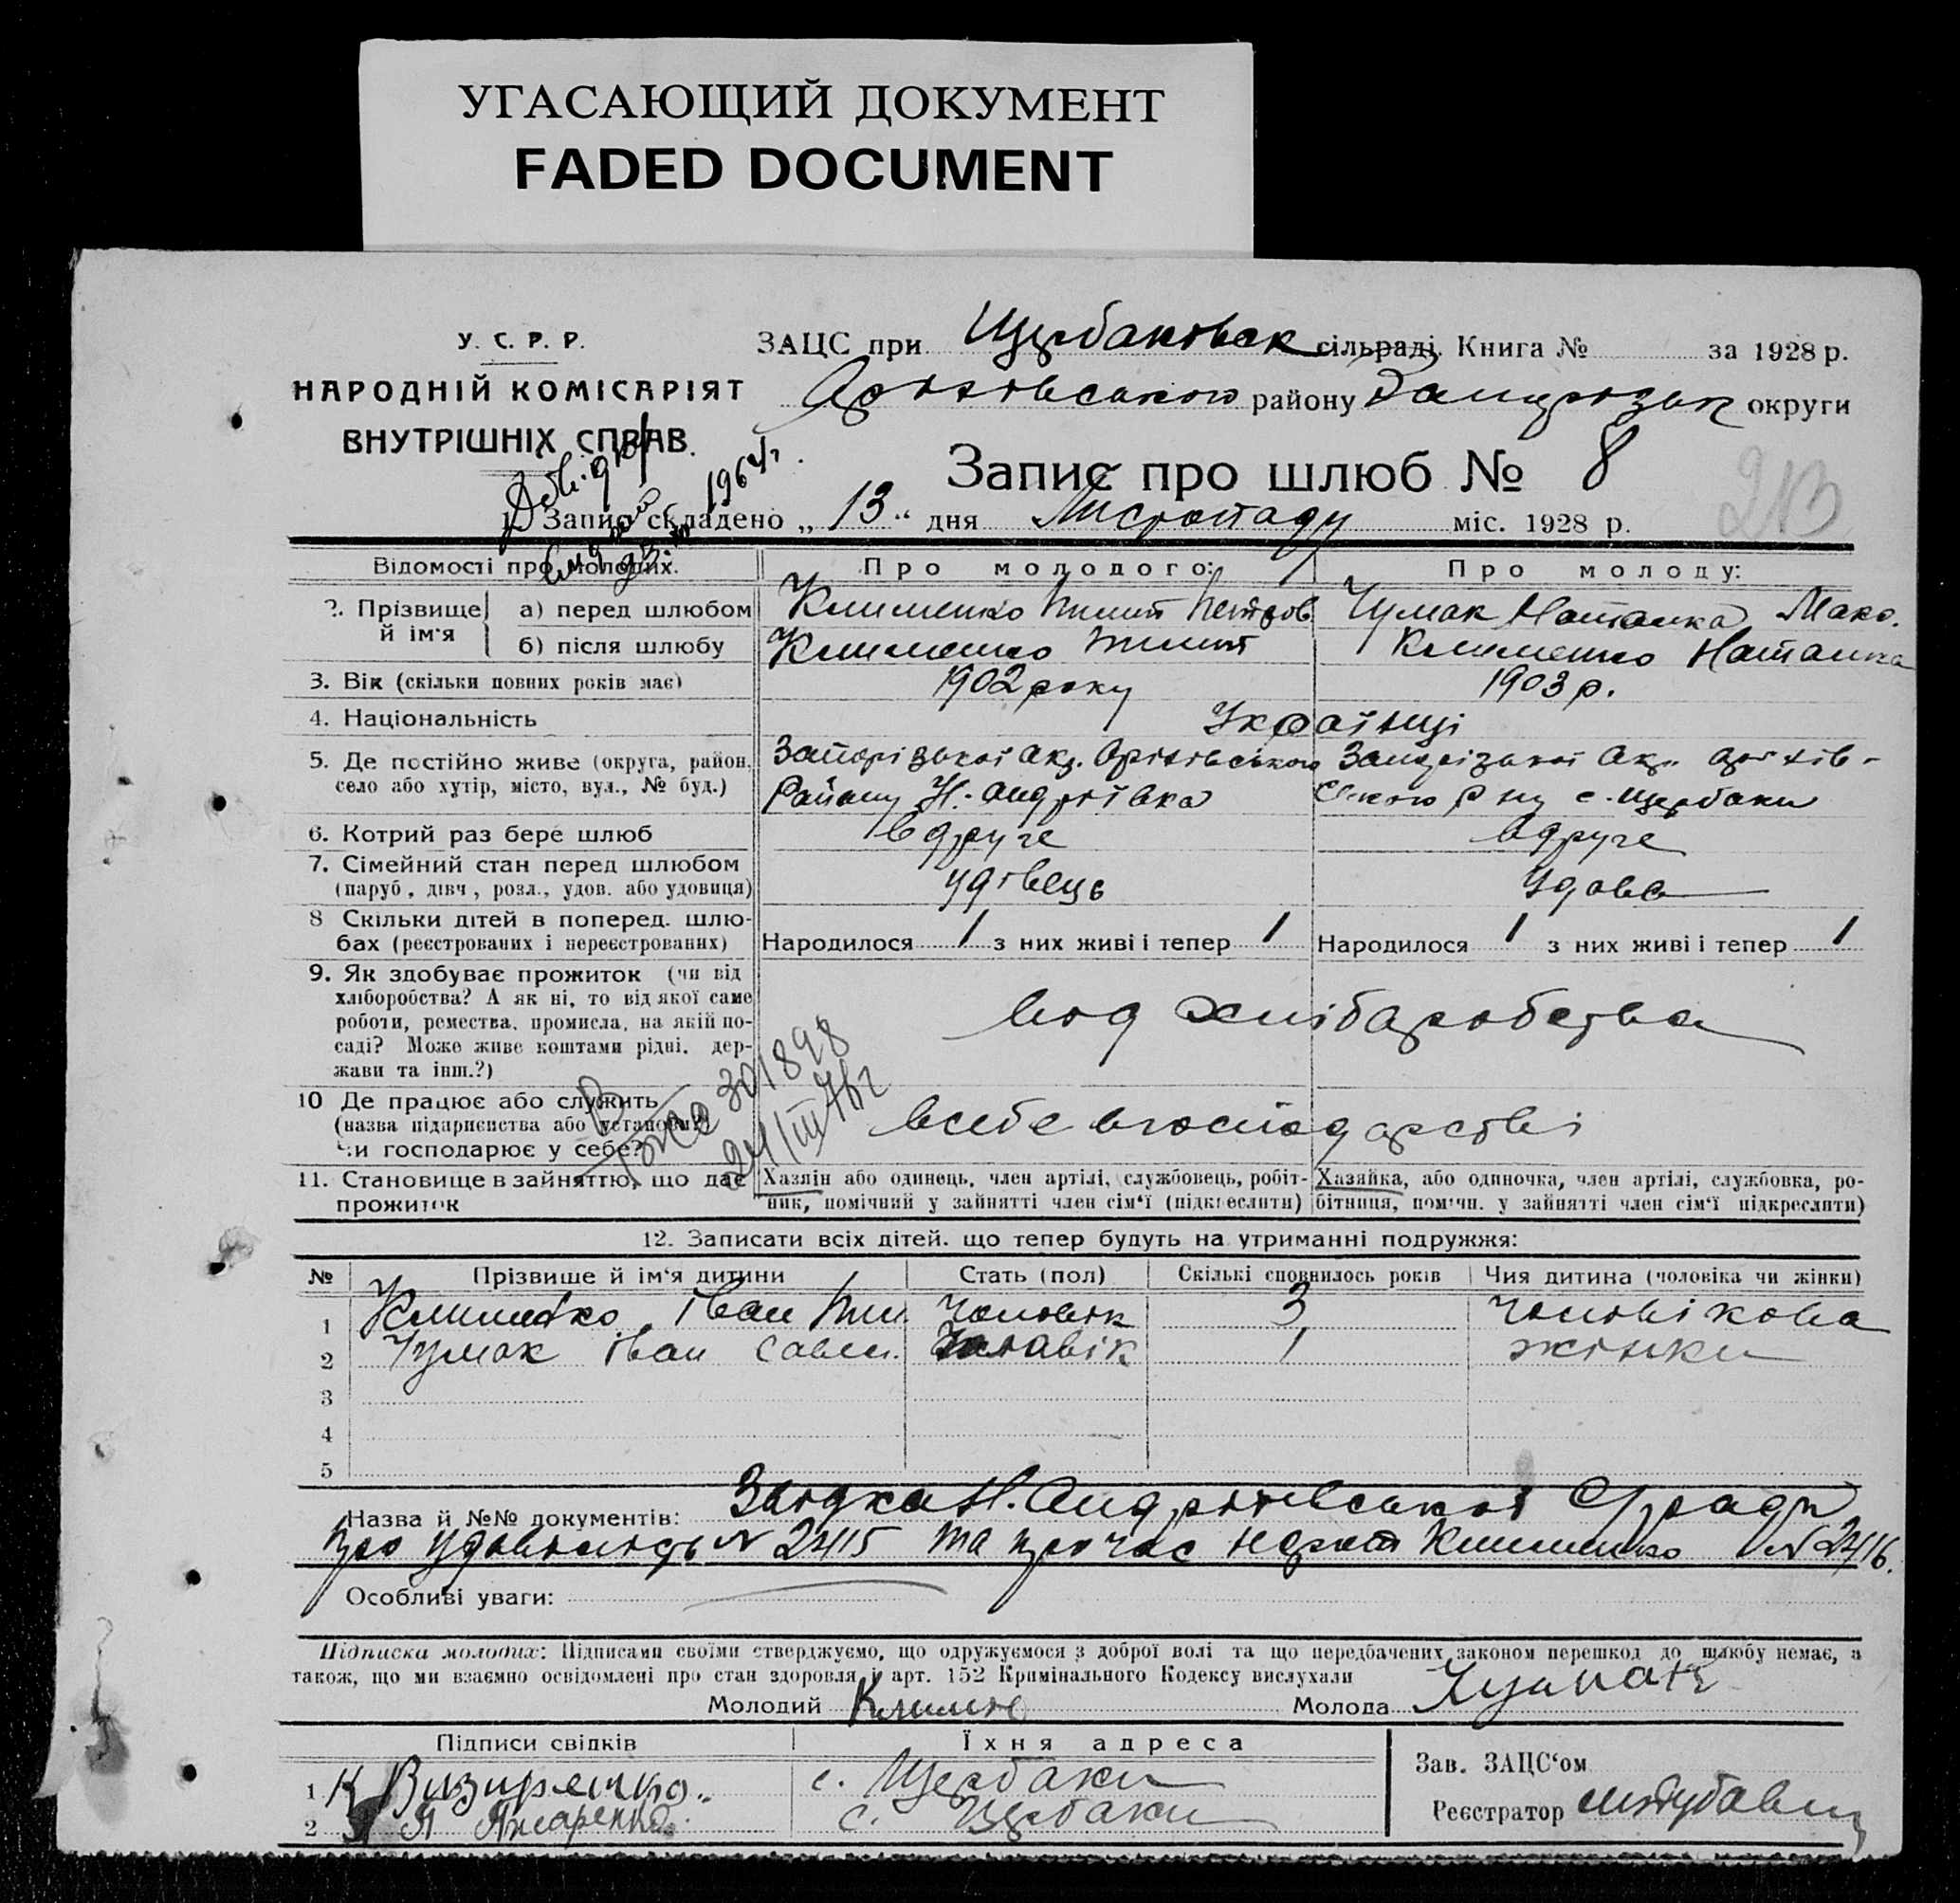 УГАСАЮЩИЙ ДОКУМЕНТ
FADED DOCUMENT
У. С. Р. Р.
НАРОДНІЙ КОМІСАРІЯТ
ВНУТРІШНІХ СПРАВ.
ЗАЦС при Щербаковск сільраді Книга № за 1928 р.
Оріхівського району Запорізьк округи
Запис про шлюб № 8
213
1964 г.
1. Запис складено „ 13 “ дня Листопаду міс. 1928 р.
Відомості про молодих. Про молодого: Про молоду:
2. Прізвище й ім‘я а) перед шлюбом Клименко Пилип Петров Чумак Наталка Мако.
б) після шлюбу Клименко Пилип Клименко Наталка
3. Вік (скільки повних років має) 1902 року 1903 р.
4. Національність Українці
5. Де постійно живе (округа, район, Запорізької Окр. Оріхівського Запорізької Окр. Оріхів-
село або хутір, місто, вул., № буд.) Району Н.-Андріївка ського Р ну с. Щербаки
6. Котрий раз бере шлюб вдруге вдруге
7. Сімейний стан перед шлюбом удівець Удова
(паруб., дівч., розл., удов. або удовиця)
8 Скільки дітей в поперед. шлю-
бах (реєстрованих і нереєстрованих) Народилося 1 з них живі і тепер 1 Народилося 1 з них живі і тепер 1
9. Як здобуває прожиток (чи від
хліборобства? А як ні, то від якої саме
роботи, ремества, промисла, на якій по-
саді? Може живе коштами рідні, дер-
жави та інш.?)
вод хліборобства
301898
24/III 76г
10 Де працює або служить
(назва підприємства або установи?)
чи господарює у себе?
в себе в господарстві
11. Становище в зайняттю, що дає Хазяїн або одинець, член артілі, службовець, робіт- Хазяйка, або одиночка, член артілі, службовка, ро-
прожиток ник, помічний у зайнятті член сім‘ї (підкреслити) бітниця, помічн. у зайнятті член сім‘ї підкреслити)
12. Записати всіх дітей, що тепер будуть на утриманні подружжя:
№ Прізвище й ім‘я дитини Стать (пол) Скількі сповнилось років Чия дитина (чоловіка чи жінки)
1 Клименко Іван Пил. Чоловік 3 Чоловікова
2 Чумак Іван Савел. Чоловік 1 жінки
3
4
5
Назва й №№ документів: Звідка Н. Андріївської С/ради
про удовність № 2415 та про час Клименко № 2416.
Особливі уваги:
Підписка молодих: Підписами своїми стверджуємо, що одружуємося з доброї волі та що передбачених законом перешкод до шлюбу немає, а
також, що ми взаємно освідомлені про стан здоровля і арт. 152 Кримінального Кодексу вислухали
Молодий Клименко Молода
Підписи свідків Їхня адреса
Зав. ЗАЦС‘ом
1 К Визиренко с. Щербаки
Реєстратор
2 с. Щербаки